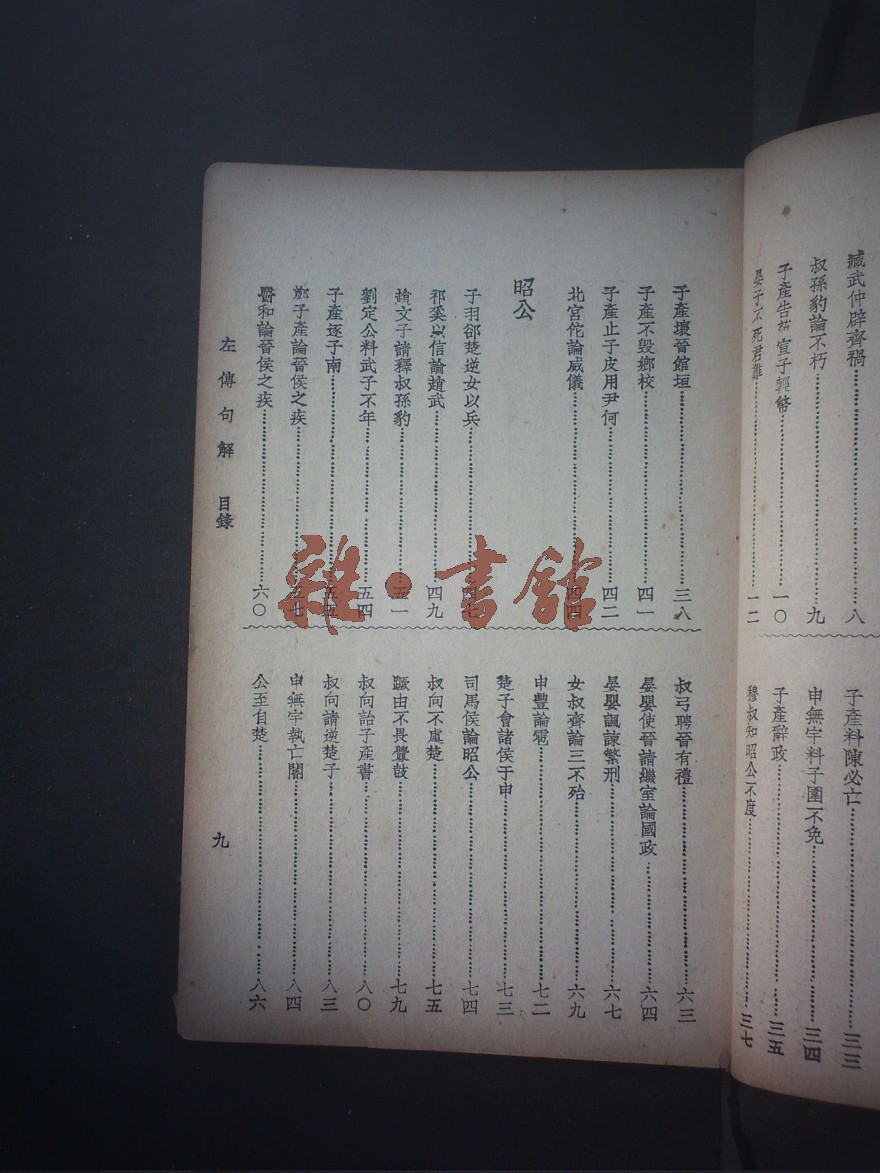 臧武仲辟齊禍……八
叔孫豹論不朽……九
子產告范宣子輕幣……一〇
晏子不死君難……一二
子產料陳必亡……三三
申無宇料子圍不免……三四
子產辭政……三五
穆叔知昭公不度……三七
子產壞晉館垣……三八
子產不毀鄉校……四一
子產止子皮用尹何……四二
北宮佗論威儀……四四
昭公
子羽郤楚逆女以兵……四七
祁奚以信論趙武……四九
趙文子請釋叔孫豹……五一
劉定公料武子不年……五四
子產逐子南……五五
鄭子產論晉侯之疾……五七
醫和論晉侯之疾……六〇
叔弓聘晉有禮……六三
晏嬰使晉請繼室論國政……六四
晏嬰諷諫繁刑……六七
女叔齊論三不殆……六九
申豐論雹……七二
楚子會諸侯于申……七三
司馬侯論昭公……七四
叔向不虞楚……七五
蹶由不畏釁鼓……七九
叔向詒子產書……八〇
叔向請逆楚子……八三
申無宇執亡閽……八四
公至自楚……八六
左傳句解 目錄
九
雜·書館